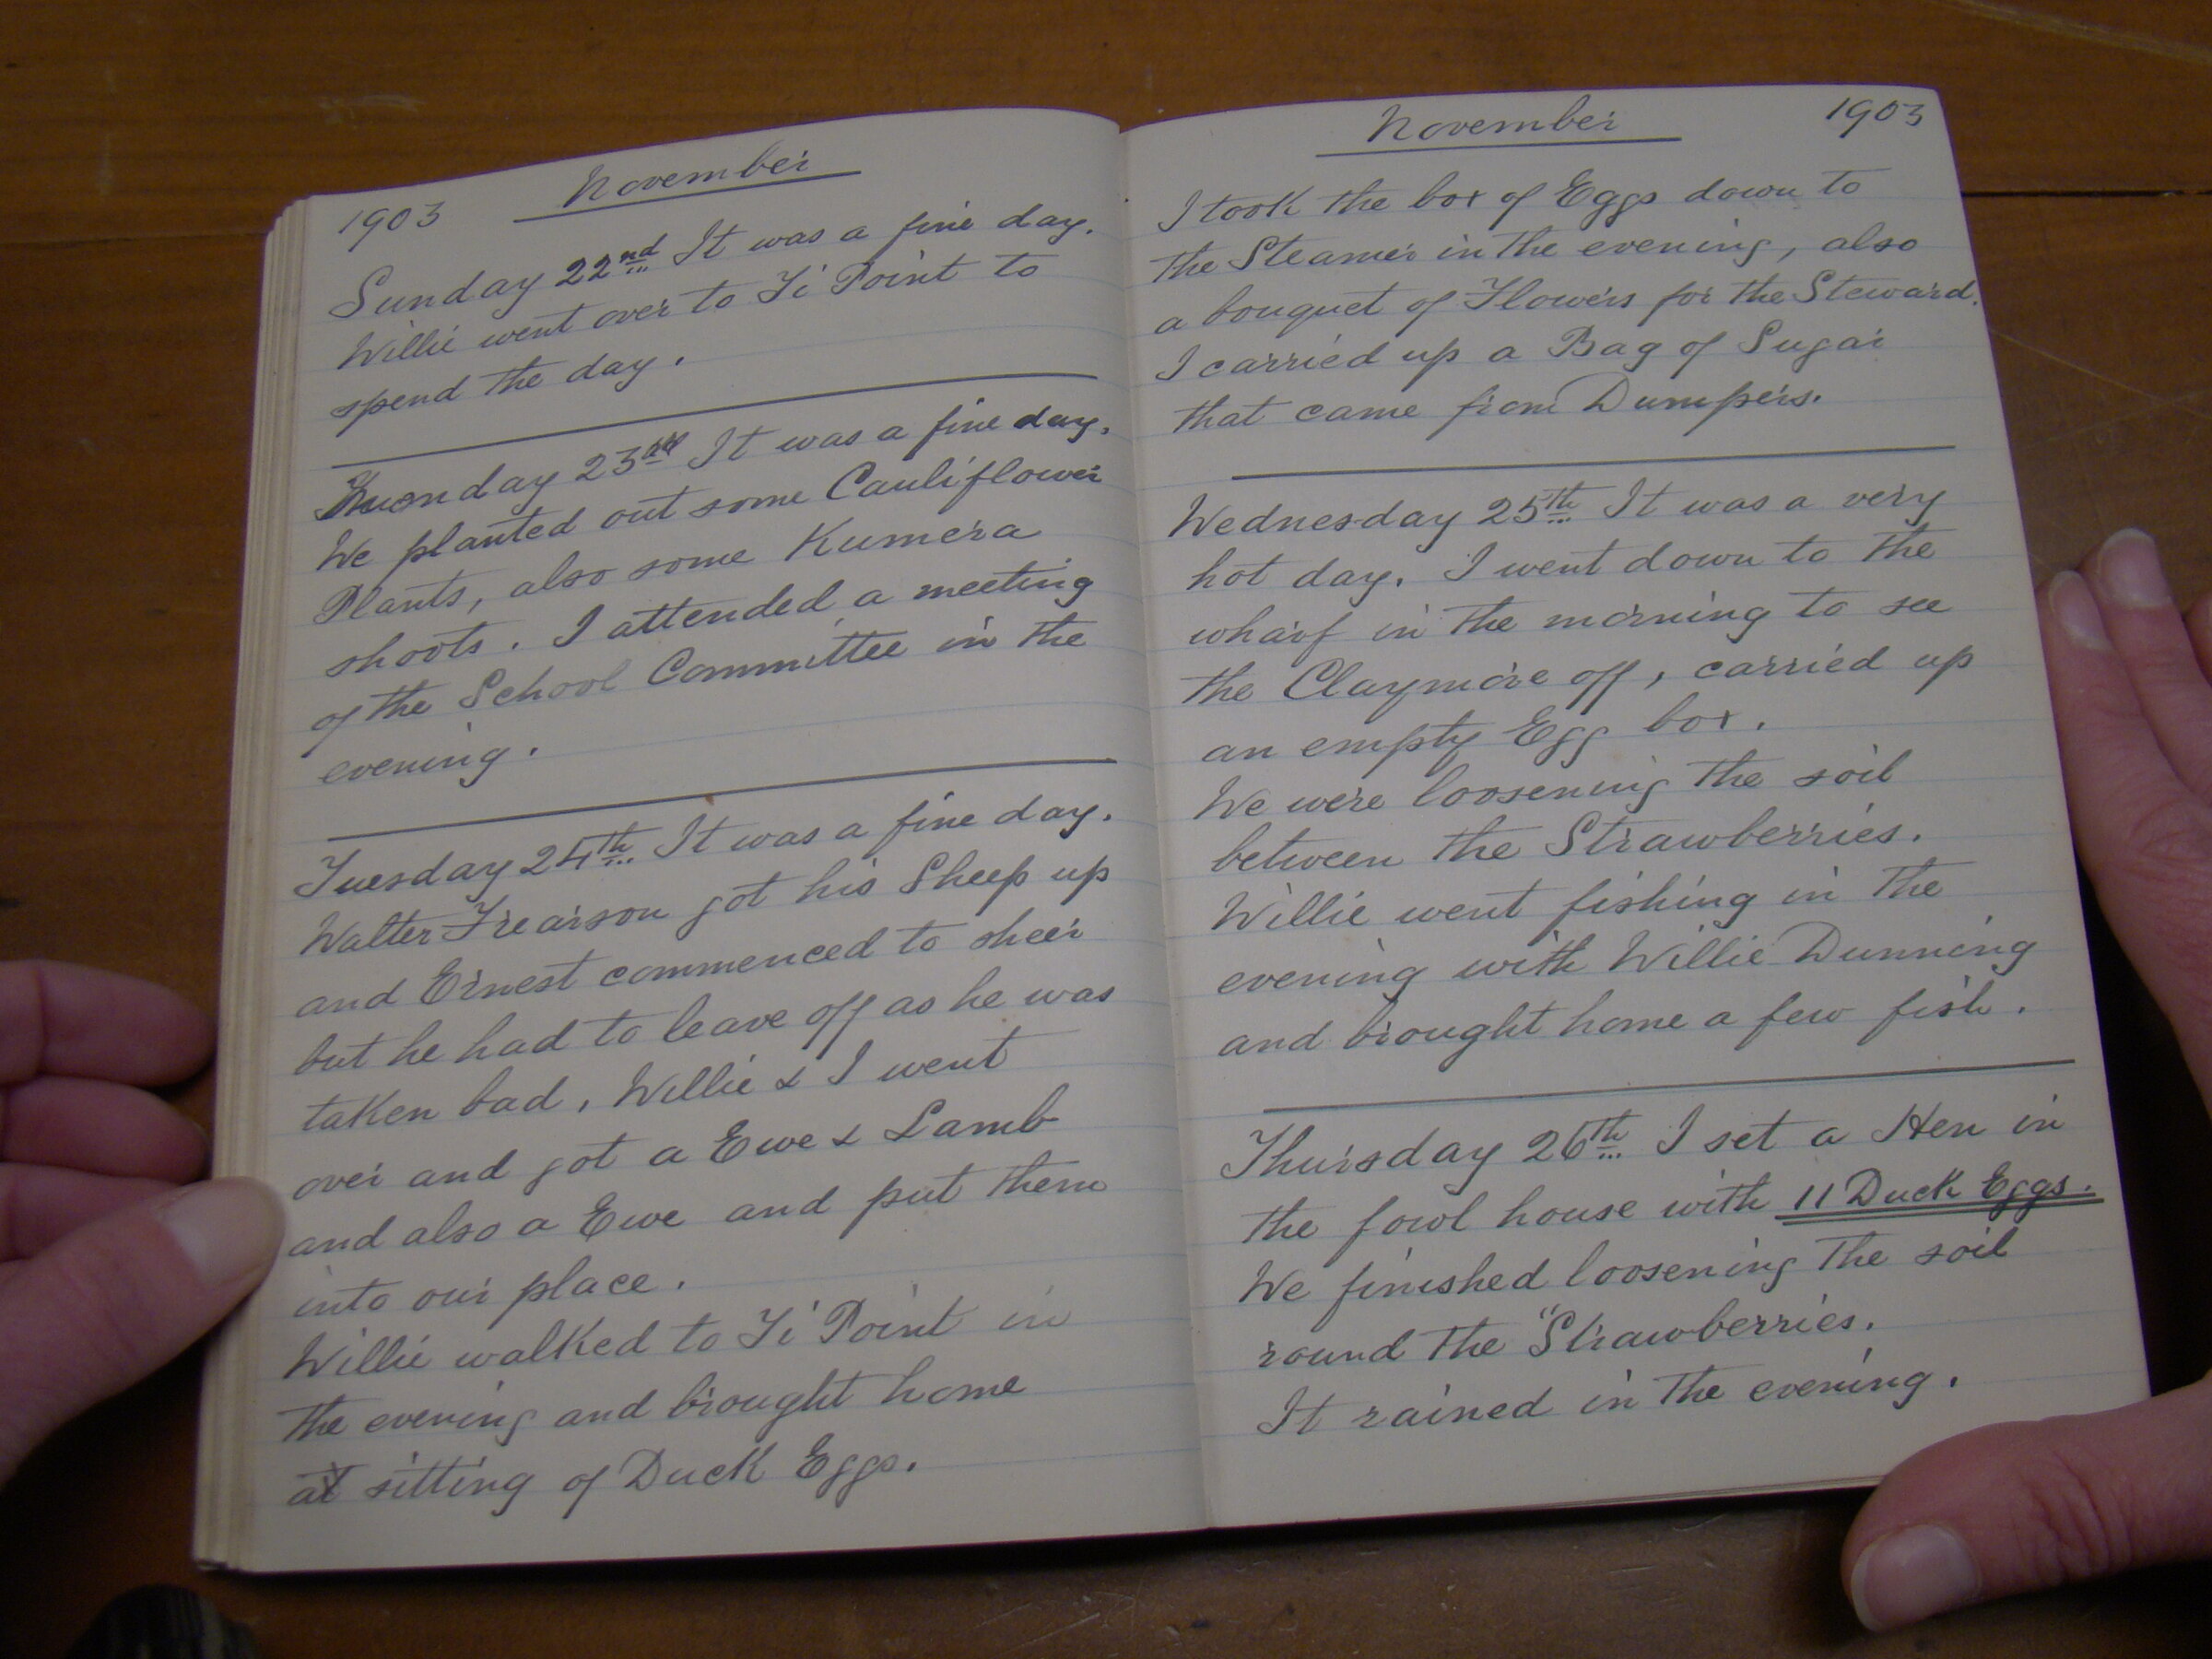 November
1903
Sunday 22nd It was a fine day.
Willie went over to Ti Point to
spend the day.
Monday 23rd It was a fine day.
We planted out some Cauliflower
Plants, also some Kumera
shoots. I attended a meeting
of the School Committee in the
evening.
Tuesday 24th It was a fine day.
Walter Frearson got his Sheep up
and Ernest commenced to sheer
but he had to leave off as he was
taken bad, Willie & I went
over and got a Ewe & Lamb
and also a Ewe and put them
into our place.
Willie walked to Ti Point in
the evening and brought home
a sitting of Duck Eggs.
November 1903
I took the box of Eggs down to
the Steamer in the evening, also
a bouquet of Flowers for the Steward.
I carried up a Bag of Sugar
that came from Dumpers.
Wednesday 25th It was a very
hot day. I went down to the
wharf in the morning to see
the Claymore off, carried up
an empty Egg box.
We were loosening the soil
between the Strawberries.
Willie went fishing in the
evening with Willie Dunning
and brought home a few fish.
Thursday 26th I set a Hen in
the fowl house with 11 Duck Eggs.
We finished loosening the soil
round the "Strawberries.
It rained in the evening.